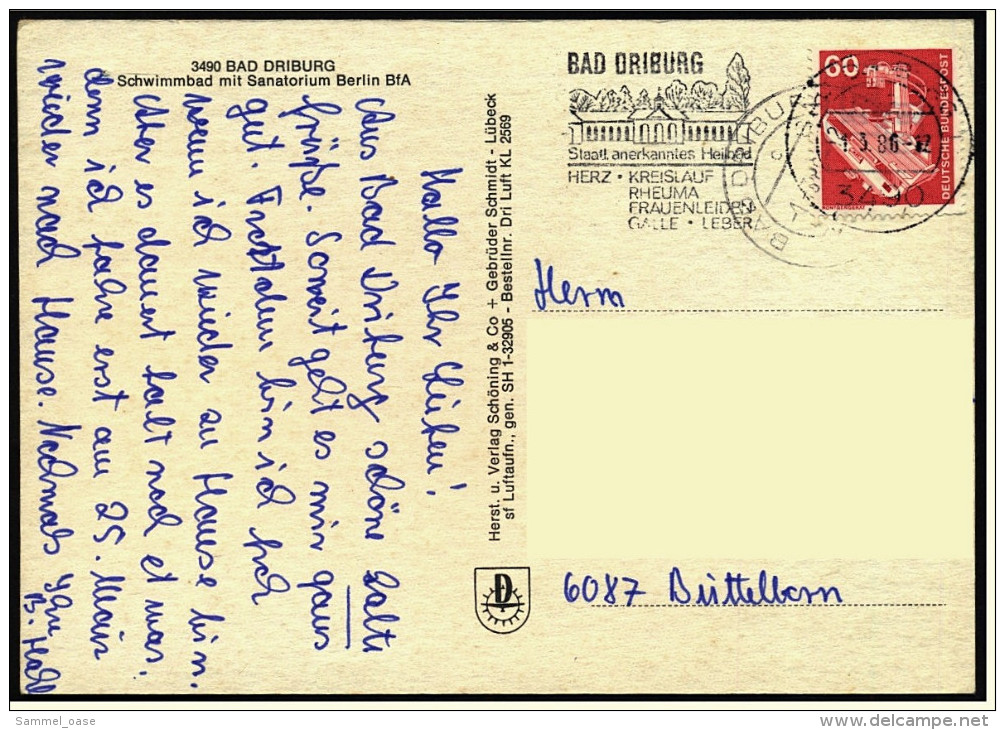 3490 BAD DRIBURG
Schwimmbad mit Sanatorium Berlin BfA
Hallo Ihr Lieben!
Aus Bad Driburg schöne kalte
Grüße. Soweit geht es mir ganz
gut. Trotzdem bin ich froh
wenn ich wieder zu Hause bin.
Aber es dauert halt noch etwas.
denn ich fahre erst am 25. März
wieder nach Hause. Nochmals Ihr
Herst. u. Verlag Schöning & Co + Gebrüder Schmidt - Lübeck
sf Luftaufn., gen. SH 1-32905 - Bestellnr. Dri Luft KL 2569
BAD DRIBURG
Staatl. anerkanntes Heilbad
HERZ • KREISLAUF
RHEUMA
FRAUENLEIDEN
GALLE • LEBER
BAD DRIBURG
60
DEUTSCHE BUNDESPOST
3.86-12
3490
Herrn
6087 Büttelborn
Sammel_oase
www.delcampe.net